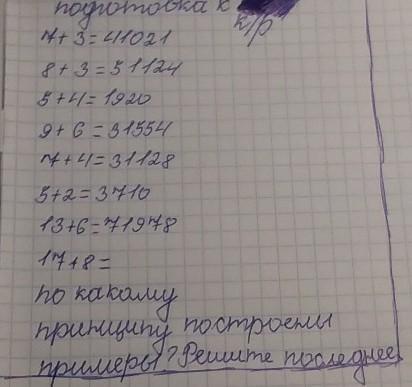 подготовка к к/р
7+3=41021
8+3=51124
5+4=1920
9+6=31554
7+4=31128
5+2=3710
13+6=71978
17+8=
по какому
принципу построены
примеры? Решите последнее.